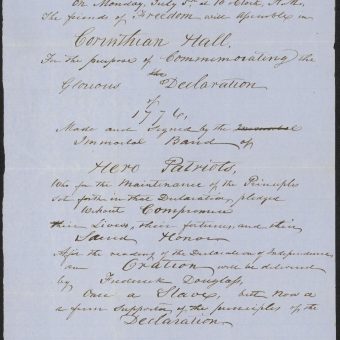 On Monday, July 5th at 10 O'Clock, A.M.
The friends of Freedom will assemble in
Corinthian Hall.
For the purpose of Commemorating the
Glorious the Declaration
of
1776,
Made and Signed by the
Immortal Band of
Hero Patriots,
Who for the Maintenance of the Principles
set forth in that Declaration, pledged
Without Compromise
their Lives, their fortunes, and their
Sacred Honor
After the reading of the Declaration of Independence
an Oration will be delivered
by Frederick Douglass,
Once a Slave, but now a
a firm supporter of the principles of the
Declaration